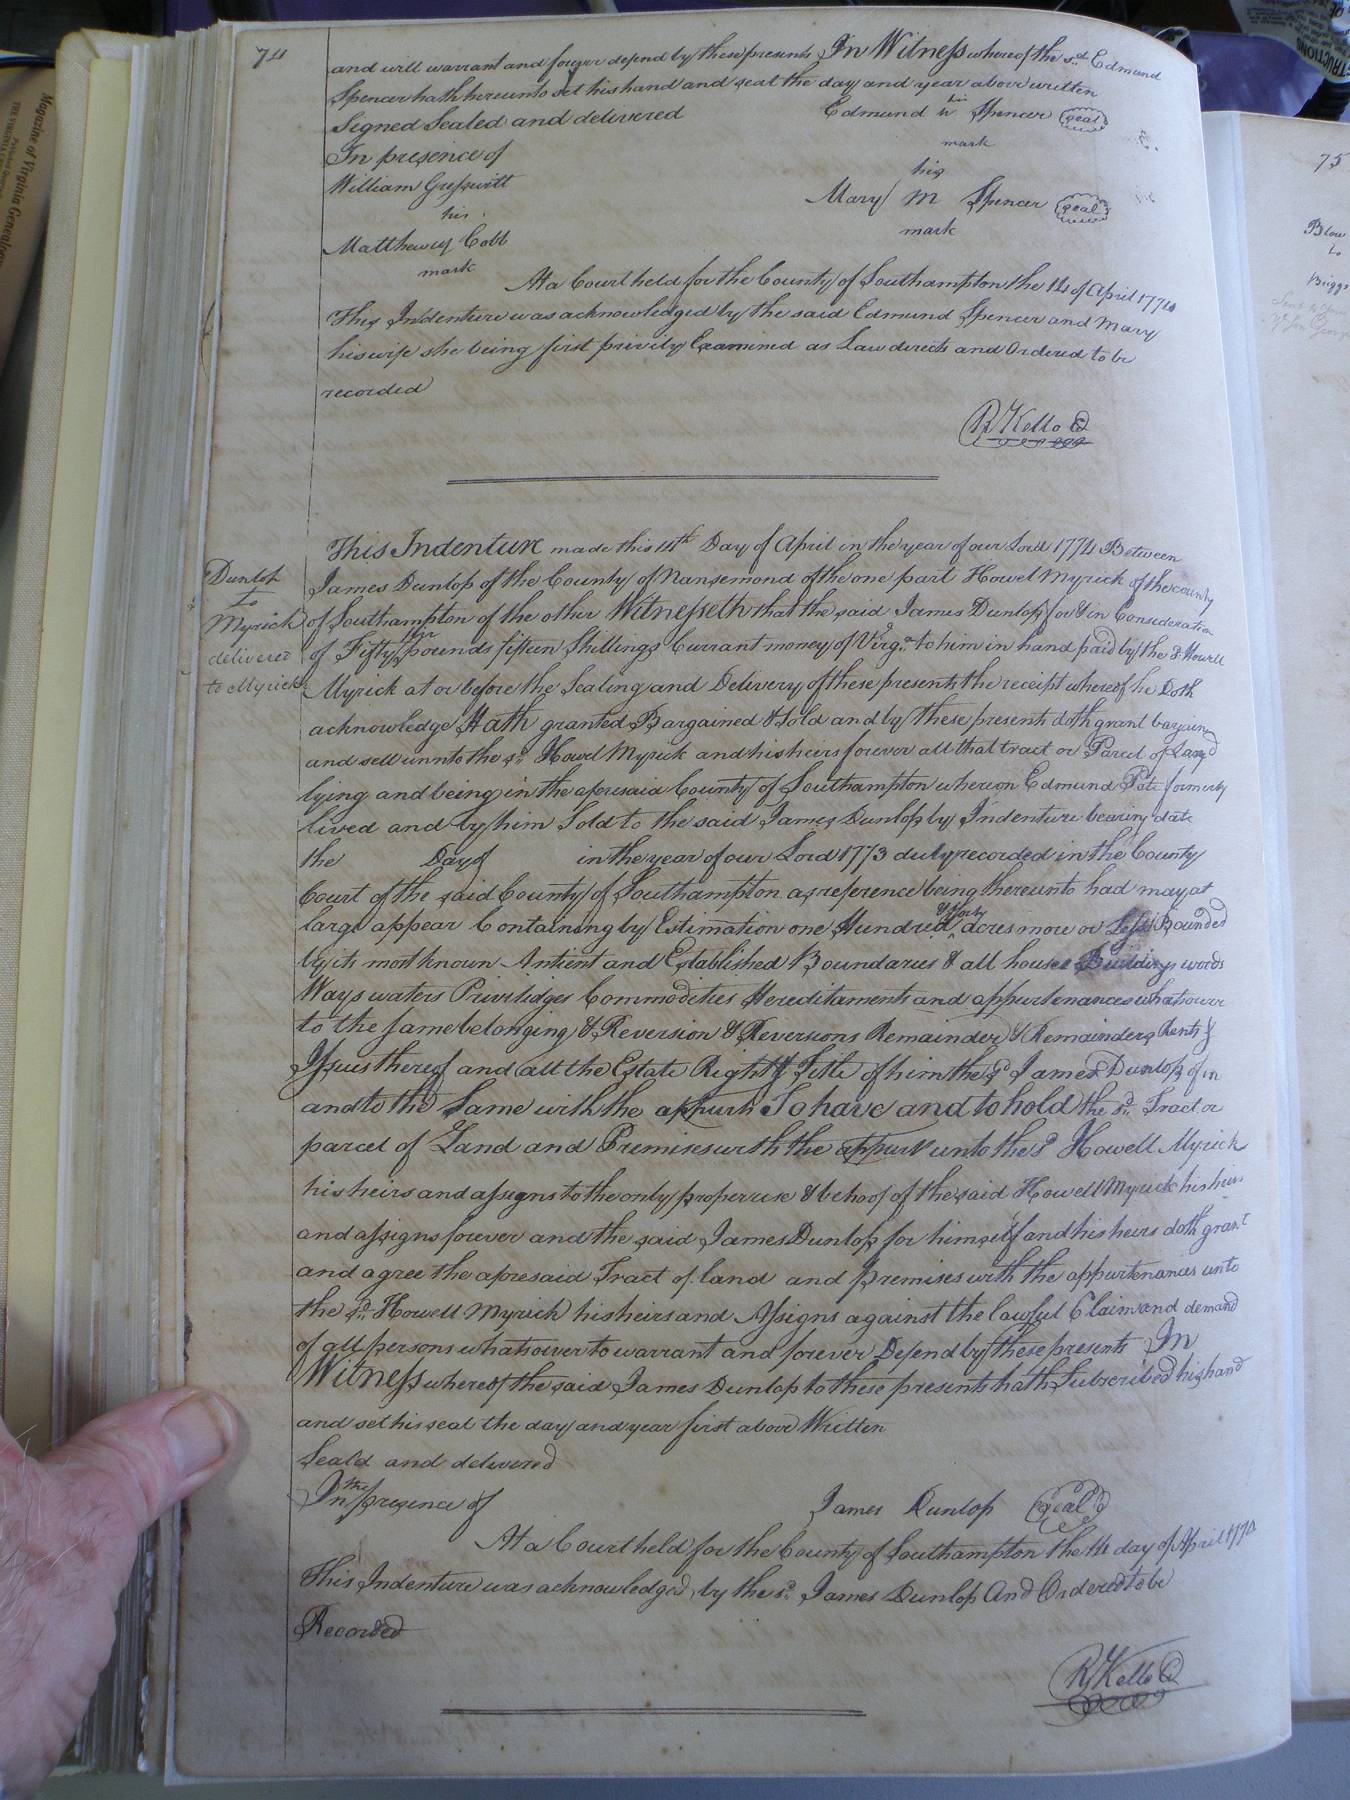 74
and will warrant and forever defend by these presents In Witness whereof the sd. Edmund
Spencer hath hereunto set his hand and seal the day and year above written
Signed Sealed and delivered
his
Edmund Spencer seal
In presence of
mark
William Gresswitt
his
Mary M Spencer seal
his
mark
Matthew Cobb
mark
At a Court held for the County of Southampton the 14 of April 1774
This Indenture was acknowledged by the said Edmund Spencer and Mary
his wife she being first privily Examined as Law directs and Ordered to be
recorded
R Kello
This Indenture made this 14th Day of April in the year of our Lord 1774 Between
Dunlop
to
Myrick
delivered
to Myrick
James Dunlop of the County of Nansemond of the one part Howel Myrick of the county
of Southampton of the other Witnesseth that the said James Dunlop for & in Consideration
of Fifty pounds fifteen Shillings Currant money of Virga. to him in hand paid by the sd. Howell
Myrick at or before the Sealing and Delivery of these presents the receipt whereof he Doth
acknowledge Hath granted Bargained & Sold and by these presents doth grant bargain
and sell unnto the sd. Howel Myrick and his heirs forever all that tract or Parcel of Land
lying and being in the aforesaid County of Southampton whereon Edmund Pate formerly
lived and by him Sold to the said James Dunlop by Indenture bearing date
the Day of in the year of our Lord 1773 duly recorded in the County
Court of the said County of Southampton as reference being thereunto had may at
large appear Containing by Estimation one Hundred & forty acres more or Less Bounded
by its most known Antient and Established Boundaries & all houses Buildings woods
Ways waters Priviledges Commodities Hereditaments and appurtenances whatsoever
to the same belonging & Reversion & Reversions Remainder & Remainders Rents &
Issues thereof and all the Estate Right & Title of him the sd James Dunlop of in
and to the Same with the appurts To have and to hold the sd. Tract or
parcel of Land and Premises with the appurts unto the sd Howell Myrick
his heirs and assigns to the only proper use & behoof of the said Howell Myrick his heirs
and assigns forever and the said James Dunlop for himself and his heirs doth grant
and agree the aforesaid Tract of land and premises with the appurtenances unto
the sd. Howell Myrick his heirs and Assigns against the lawful Claim and demand
of all persons whatsoever to warrant and forever Defend by these presents In
Witness whereof the said James Dunlop to these presents hath Subscribed his hand
and set his seal the day and year first above Written
Seald and delivered
In the presence of
James Dunlop Seal
At a Court held for the County of Southampton the 14 day of April 1774
This Indenture was acknowledged by the sd. James Dunlop And Ordered to be
Recorded
R Kello
75
Blow
to
Briggs
Magazine of Virginia Genealogy